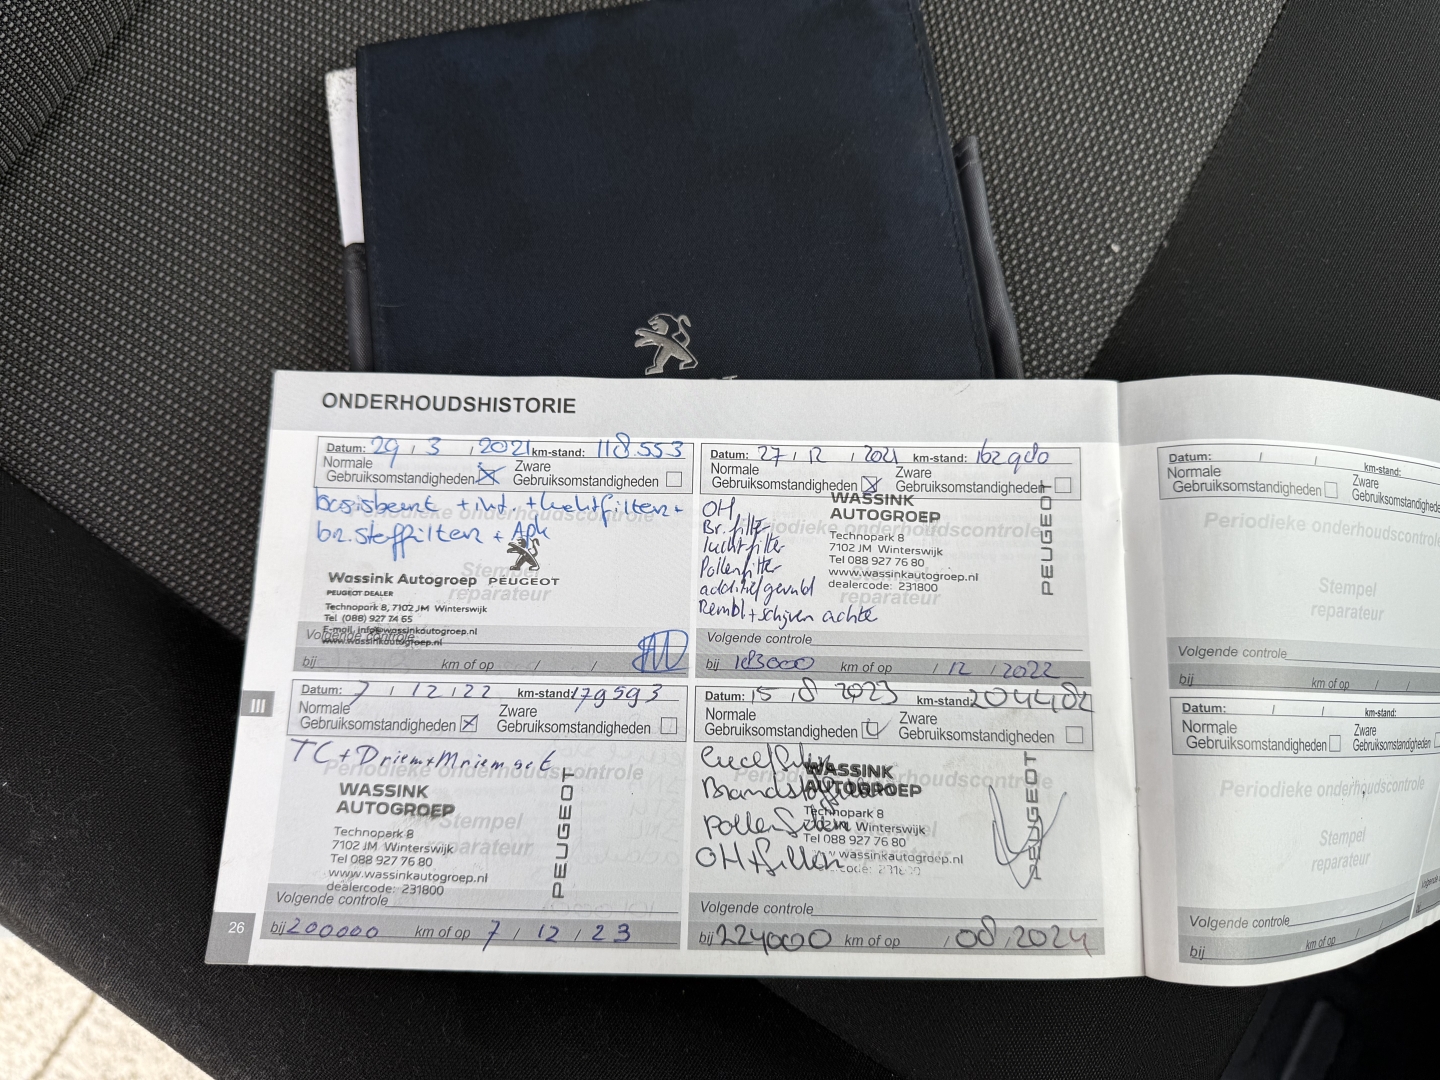 ONDERHOUDSHISTORIE
Datum: 29 / 3 / 2021 km-stand: 118.553
Normale
Gebruiksomstandigheden
Zware
Gebruiksomstandigheden
Periodieke onderhoudscontrole
basisbeurt + int. + luchtfilter +
br.stoffilter + Apk
Stempel
reparateur
Wassink Autogroep PEUGEOT
PEUGEOT DEALER
Technopark 8, 7102 JM Winterswijk
Tel (088) 927 74 65
E-mail, info@wassinkautogroep.nl
www.wassinkautogroep.nl
Volgende controle
bij km of op / /
Datum: 27 / 12 / 2021 km-stand: 162980
Normale
Gebruiksomstandigheden
Zware
Gebruiksomstandigheden
Periodieke onderhoudscontrole
OH,
Br. filter
luchtfilter
Pollenfilter
additief gevuld
Rembl + schijven achter
WASSINK
AUTOGROEP
Technopark 8
7102 JM Winterswijk
Tel 088 927 76 80
www.wassinkautogroep.nl
dealercode: 231800
PEUGEOT
reparateur
Volgende controle
bij 183000 km of op / 12 / 2022
Datum: 7 / 12 / 22 km-stand: 179593
Normale
Gebruiksomstandigheden
Zware
Gebruiksomstandigheden
TC + Driem + Mriem set
Periodieke onderhoudscontrole
WASSINK
AUTOGROEP
Stempel
reparateur
Technopark 8
7102 JM Winterswijk
Tel 088 927 76 80
www.wassinkautogroep.nl
dealercode: 231800
PEUGEOT
Volgende controle
bij 200000 km of op 7 / 12 / 23
Datum: 15 / 8 2023 km-stand: 204482
Normale
Gebruiksomstandigheden
Zware
Gebruiksomstandigheden
Periodieke onderhoudscontrole
Brandstoffilter
pollenfilter
OH + filter
WASSINK
AUTOGROEP
Technopark 8
Winterswijk
Tel 088 927 76 80
www.wassinkautogroep.nl
PEUGEOT
Volgende controle
bij 224000 km of op / 08 / 2024
III
26
Datum: / / km-stand:
Normale
Gebruiksomstandigheden
Zware
Periodieke onderhoudscontrole
Stempel
reparateur
Volgende controle
bij km of op / /
Datum: / / km-stand:
Normale
Gebruiksomstandigheden
Zware
Gebruiksomstandigheden
Periodieke onderhoudscontrole
Stempel
reparateur
Volgende controle
bij km of op /